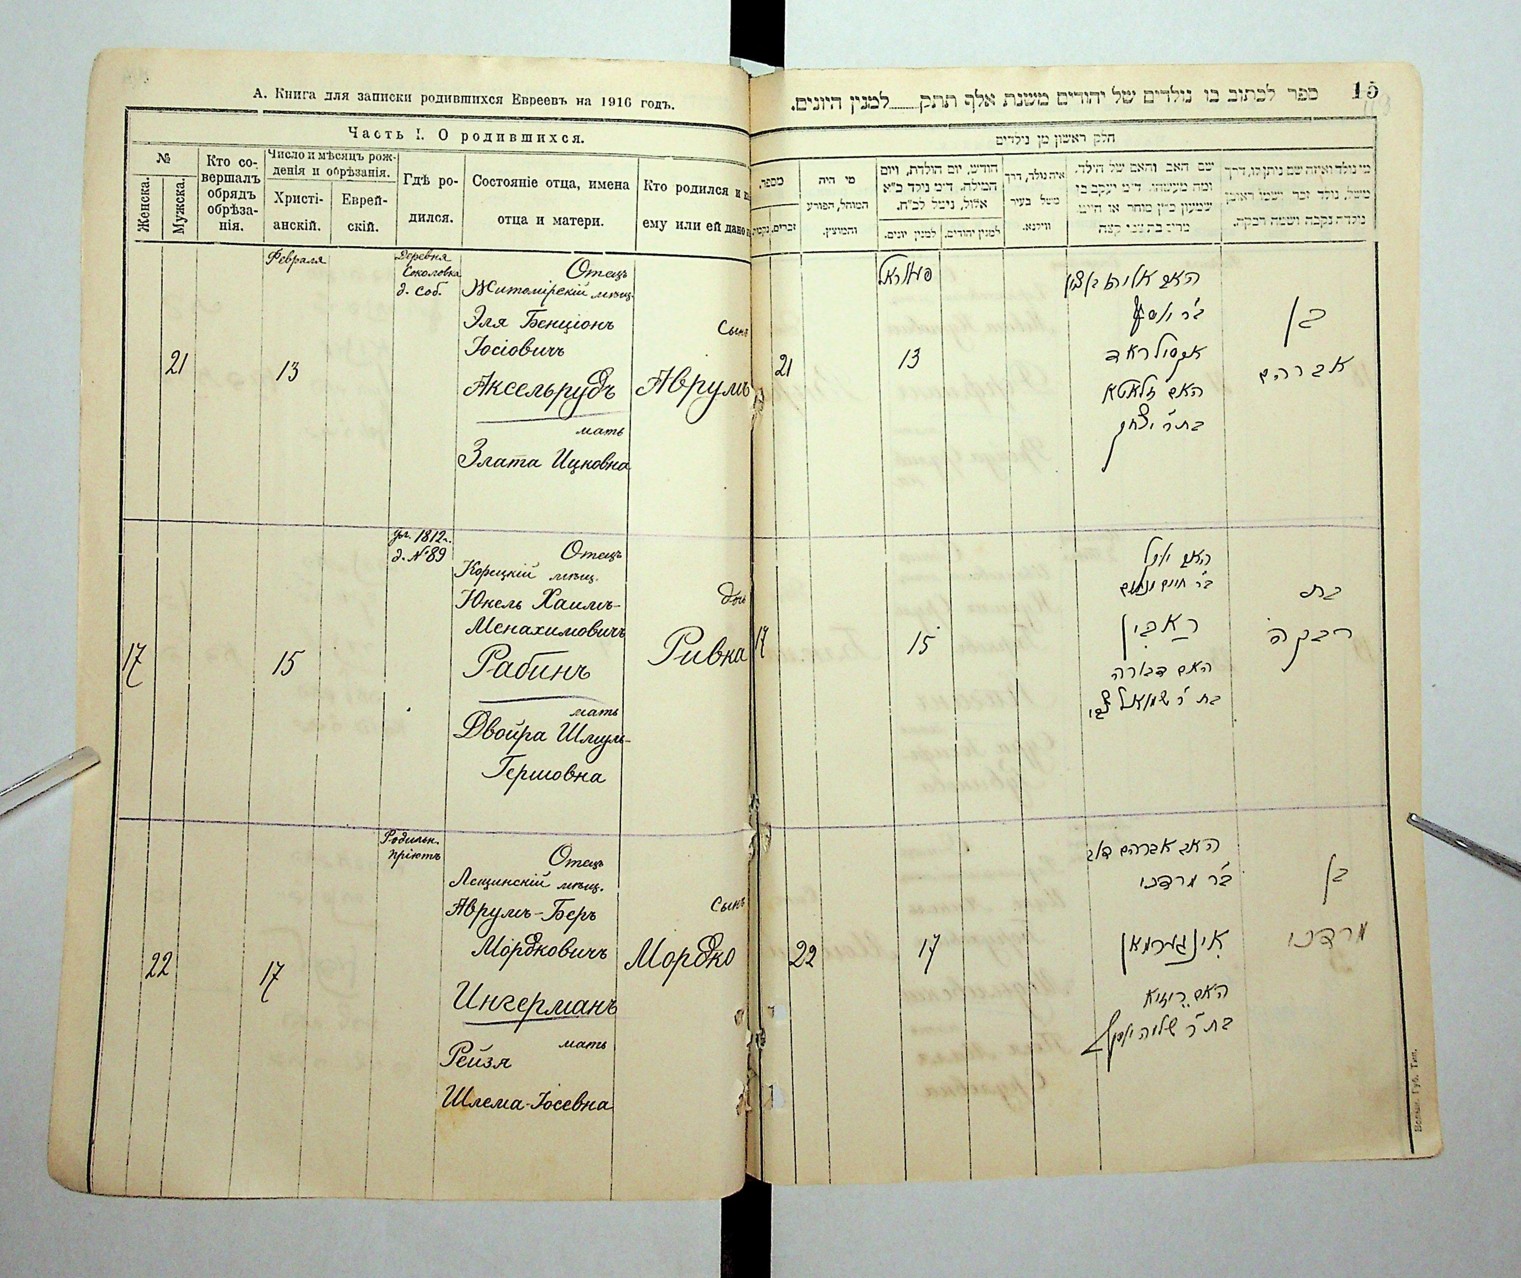 А. Книга для записки родившихся Евреевъ на 1916 годъ.
Часть I. О родившихся.
№
Женска.
Мужска.
Кто со-
вершалъ
обрядъ
обрѣза-
нія.
Число и мѣсяцъ рож-
денія и обрѣзанія.
Христі-
анскій.
Еврей-
скій.
Гдѣ ро-
дился.
Состояніе отца, имена
отца и матери.
Кто родился и
ему или ей дано
Февраля
деревня
Соколовка
д. соб.
21
13
Отецъ
Житомірскій мѣщ.
Эля Бенціонъ
Іосіовичъ
Аксельрудъ
мать
Злата Ицковна
Сынъ
Аврумъ
ул. 1812 г.
д. № 89
17
15
Отецъ
Корецкій мѣщ.
Юкель Хаимъ-
Менахимовичъ
Рабинъ
мать
Двойра Шмуль-
Гершовна
дочь
Ривка
Родильн.
пріютъ
22
17
Отецъ
мѣщ.
Аврумъ-Беръ
Мордковичъ
Ингерманъ
мать
Рейзя
Шлема-Іосевна
Сынъ
Мордко
15
ספר לכתוב בו נולדים של יהודים משנת אלף תתק למנין היונים.
חלק ראשון מן נולדים
מי נולד ואיזה שם ניתן לו, דרך
משל, נולד זכר ושמו ראובן
נולדה נקבה ושמה רבקה.
שם האב והאם של הילד,
ומה מעשהו. ד״מ יעקב בן
שמעון
איה נולד, דרך
משל בעיר
ווילנא.
חודש, יום הולדת, ויום
המילה. ד״מ נולד כ״א
אלול, נימל לכ״ח.
למנין יהודים.
למנין יונים.
מי היה
המוהל, הפורע
והמוצץ.
מספר.
זכרים.
פעוראל
21
13
האב אליהו בן ציון
ב״ר יוסף
אקסילראד
האם זלאטא
בת ר׳ יצחק
בן
אברהם
17
15
האב יוקל
ב״ר חיים מנחם
ראבין
האם דבורה
בת ר׳ שמואל צבי
בת
רבקה
22
17
האב אברהם דוב
ב״ר מרדכי
אינגערמאן
האם רייזיא
בת ר׳ שלמה יוסף
בן
מרדכי
Волын. Губ. Тип.